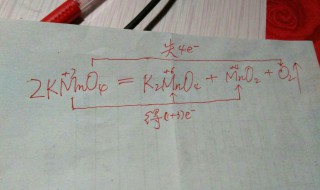 失4e⁻
2KMnO₄ = K₂MnO₄ + MnO₂ + O₂↑
得(1+3)e⁻